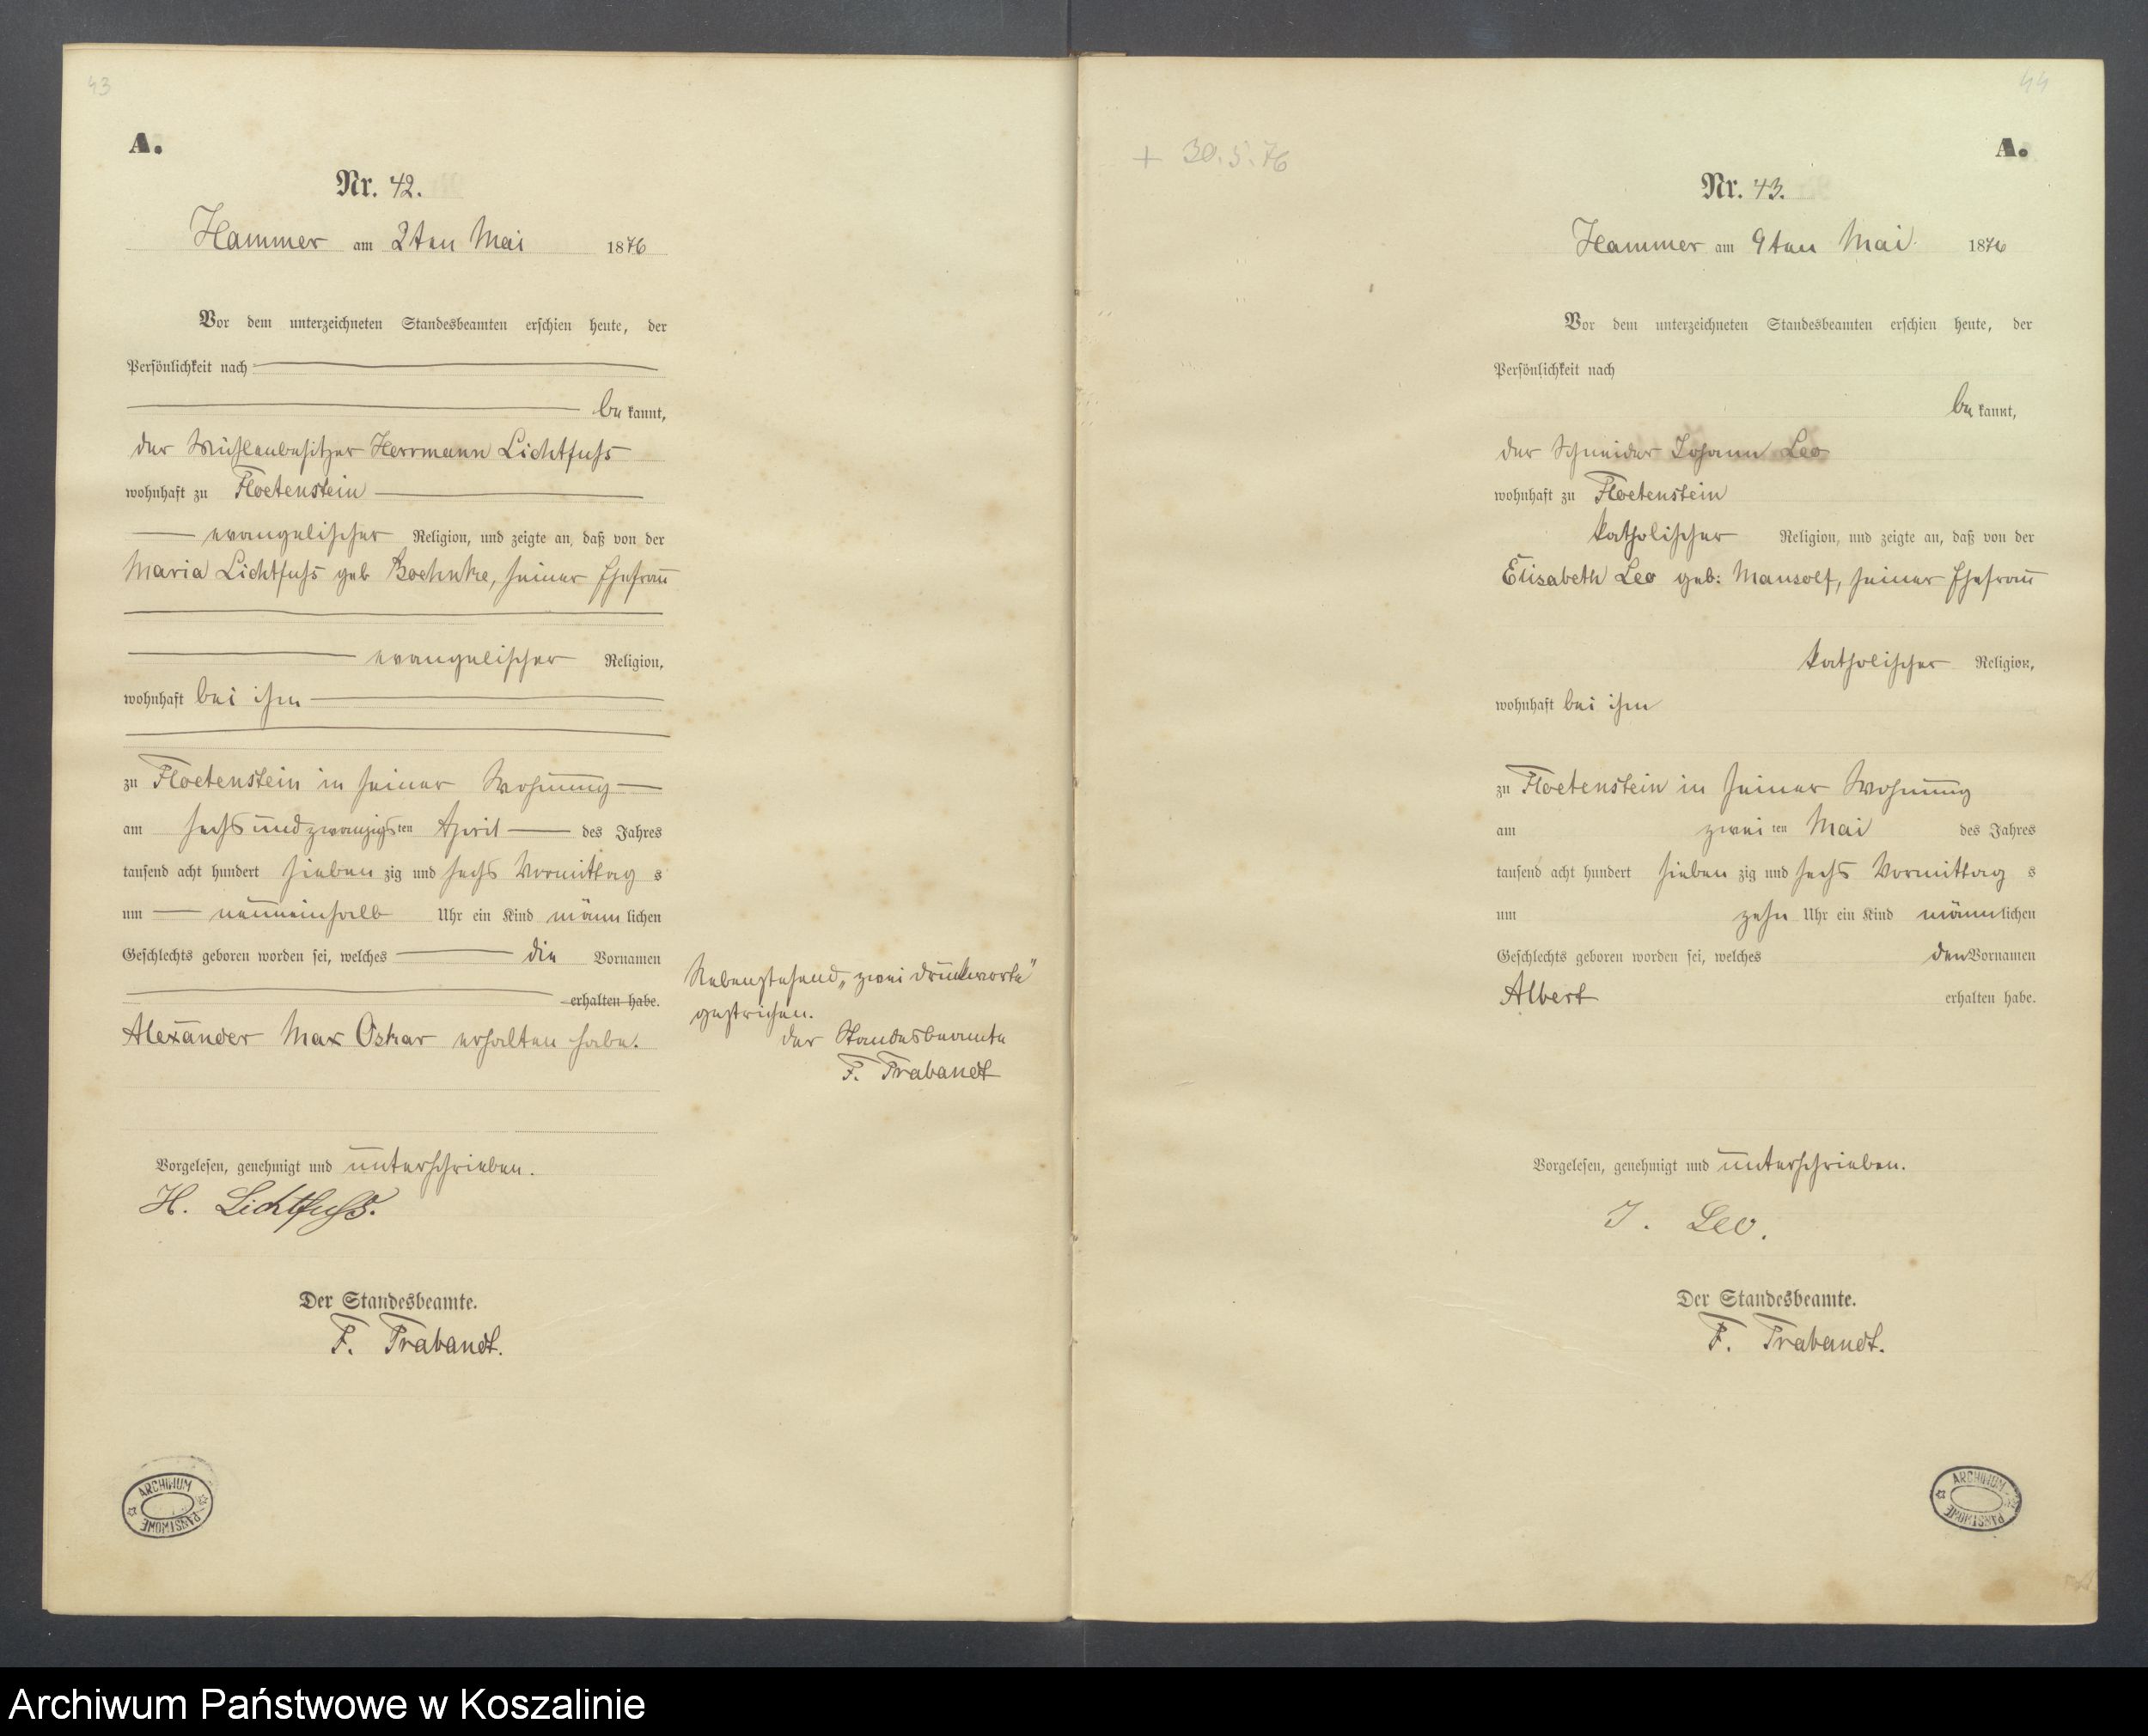 43
A.
Nr. 42.
Hammer am 2ten Mai 1876
Vor dem unterzeichneten Standesbeamten erschien heute, der
Persönlichkeit nach
be kannt,
der Mühlenbesitzer Herrmann Lichtfuss
wohnhaft zu Floetenstein
evangelischer Religion, und zeigte an, daß von der
Maria Lichtfuss geb Boehnke, seiner Ehefrau
evangelischer Religion,
wohnhaft bei ihm
zu Floetenstein in seiner Wohnung
am sechs und zwanzigsten April des Jahres
tausend acht hundert sieben zig und sechs Vormittag s
um neuneinhalb Uhr ein Kind männ lichen
Geschlechts geboren worden sei, welches die Vornamen
erhalten habe.
Alexander Max Oskar erhalten habe.
Nebenstehend „zwei Druckworte"
gestrichen.
der Standesbeamte
F. Trabandt
Vorgelesen, genehmigt und unterschrieben.
H. Lichtfuss.
Der Standesbeamte.
F. Trabandt.
ARCHIWUM PAŃSTWOWE
44
+ 30.5.76
A.
Nr. 43.
Hammer am 9ten Mai 1876
Vor dem unterzeichneten Standesbeamten erschien heute, der
Persönlichkeit nach
be kannt,
der Schneider Johann Leo
wohnhaft zu Floetenstein
katholischer Religion, und zeigte an, daß von der
Elisabeth Leo geb: Mansolf, seiner Ehefrau
katholischer Religion,
wohnhaft bei ihm
zu Floetenstein in seiner Wohnung
am zwei ten Mai des Jahres
tausend acht hundert sieben zig und sechs Vormittag s
um zehn Uhr ein Kind männlichen
Geschlechts geboren worden sei, welches den Vornamen
Albert erhalten habe.
Vorgelesen, genehmigt und unterschrieben.
J. Leo.
Der Standesbeamte.
F. Trabandt.
ARCHIWUM PAŃSTWOWE
Archiwum Państwowe w Koszalinie